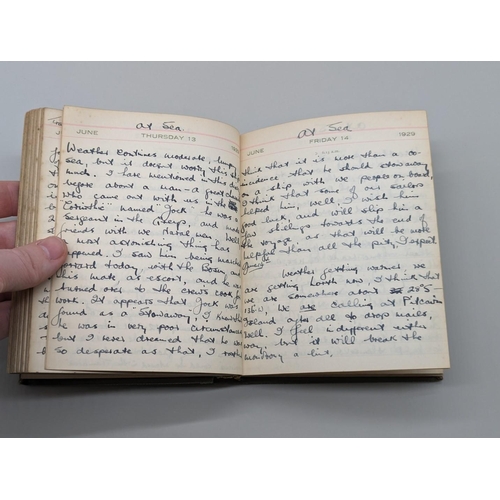 At Sea.
JUNE THURSDAY 13
Weather continues moderate,
Sea, but it doesnt worry this ship
much. I have mentioned in this diary
before about a man – a great chap
who came out with us in the
"Corinthic" named "Jock" he was a
Sergeant in the and made
friends with me Naval man. Well
a most astonishing thing has
happened. I saw him being marched
forward today, with the Bosun and
his mate, as escort, and he is
turned over to the crews cook for
work. It appears that Jock was
found as a "stowaway". I knew that
he was in very poor circumstances
but I never dreamed that he was
so desperate as that, I rather
At Sea
JUNE FRIDAY 14 1929
think that it is more than a co-
incidence that he should stowaway
on a ship with we people on board,
I think that some of our sailors
helped him, Well, I wish him
Good luck, and will slip him a
few shillings towards the end of
the voyage, as that will be more
helpful than all the pity, I expect
Weather getting warmer, we
are getting North now, I think that
we are somewhere about 20°S –
130 W, we are calling at Pitcairn
Island after all to drop mails,
Well. I feel indifferent either
way, but it will break the
monotony a bit,